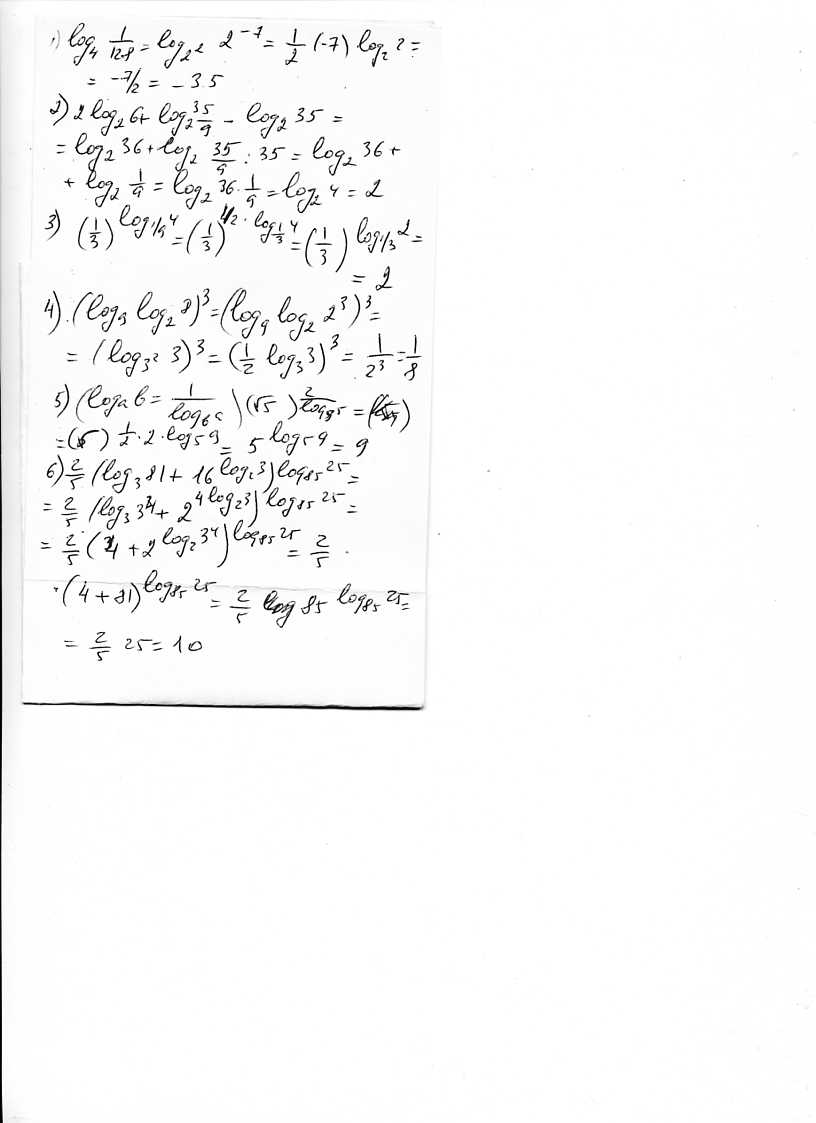 1) log₄ 1/128 = log₂² 2⁻⁷ = 1/2 (-7) log₂ 2 =
= -7/2 = -3.5
2) 2 log₂ 6 + log₂ 35/9 - log₂ 35 =
= log₂ 36 + log₂ 35/9 : 35 = log₂ 36 +
+ log₂ 1/9 = log₂ 36 · 1/9 = log₂ 4 = 2
3) (1/3)^(log_(1/9) 4) = (1/3)^(1/2 · log_(1/3) 4) = (1/3)^(log_(1/3) 2) =
= 2
4). (log₉ log₂ 8)³ = (log₉ log₂ 2³)³ =
= (log₃² 3)³ = (1/2 log₃ 3)³ = 1/2³ = 1/8
5) (logₐ b = 1/log_b c) (√5)^(2/log₉ 5) =
= (5)^(1/2 · 2 · log₅ 9) = 5^(log₅ 9) = 9
6) 2/5 (log₃ 81 + 16^(log₂ 3))^(log₈₅ 25) =
= 2/5 (log₃ 3⁴ + 2^(4 log₂ 3))^(log₈₅ 25) =
= 2/5 · (4 + 2^(log₂ 3⁴))^(log₈₅ 25) = 2/5 ·
· (4 + 81)^(log₈₅ 25) = 2/5 85^(log₈₅ 25) =
= 2/5 25 = 10